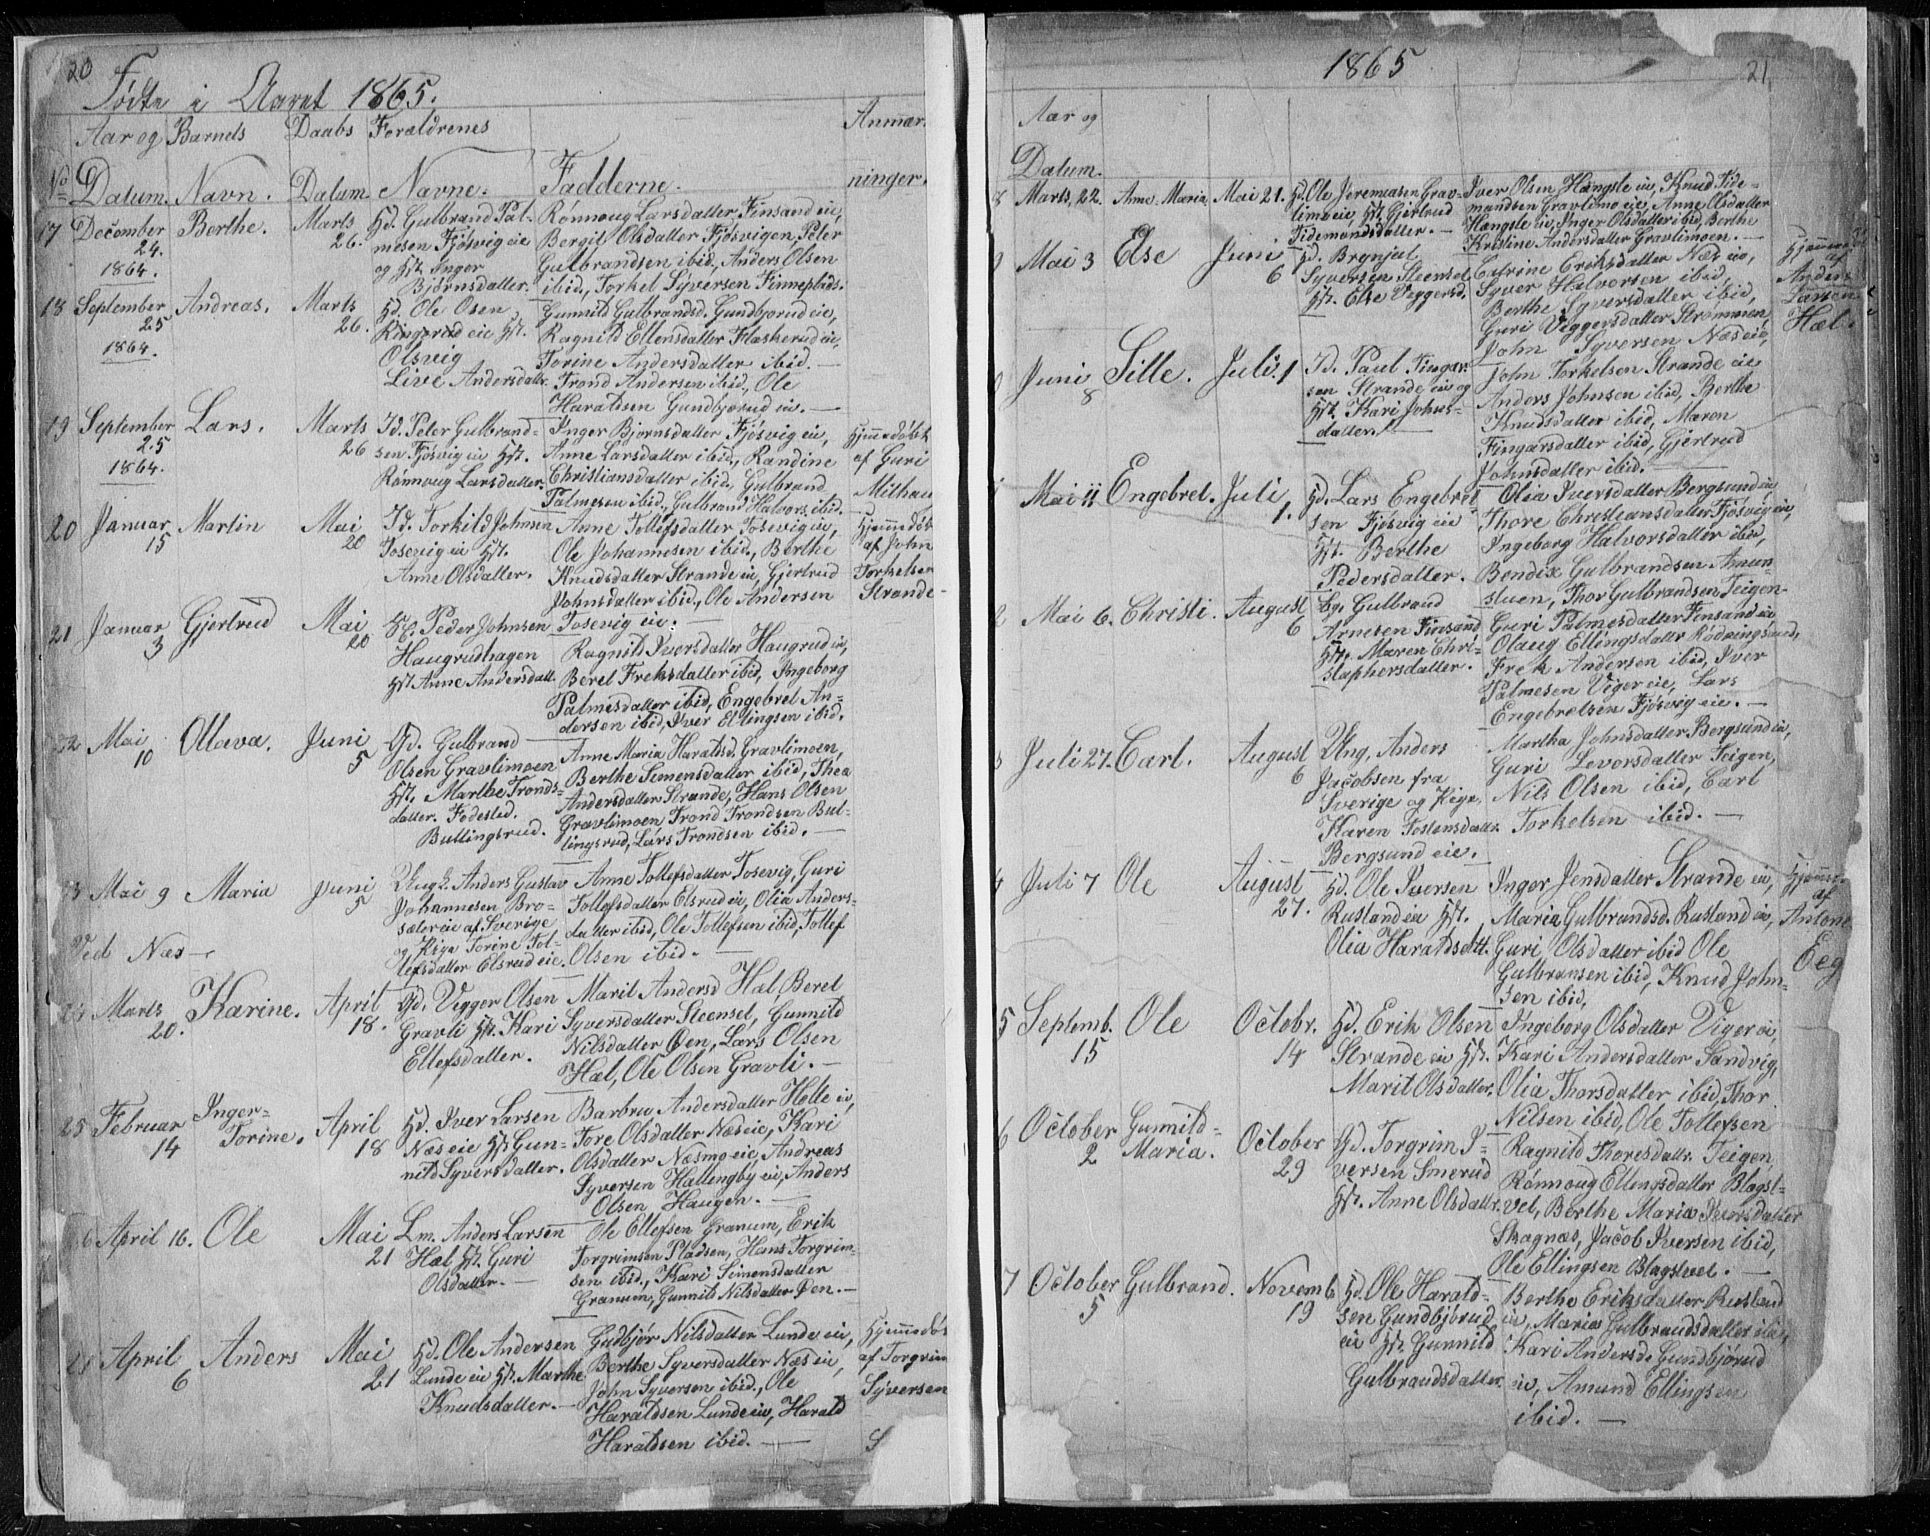 20
Födte i Aaret 1865.
Aar og Barnets Daabs Forældrenes Anmær-
No Datum. Navn. Datum. Navne. Fadderne. ninger.
17 December 24. 1864. Berthe. Marts 26.
Gd. Gulbrand Pal-
mesen Fjösvig eie
og Hst. Inger
Björnsdatter.
Rönnoug Larsdatter Finsand eie,
Bergit Olsdatter Fjösvigen, Peter
Gulbrandsen ibid., Anders Olsen
ibid., Torkel Syversen Finneplads.
18 September 25 1864. Andreas. Marts 26.
Gd. Ole Osen,
Ringerud eie Hst.
Olsvig
Live Andersdatr.
Gunnild Gulbrandsd. Gundbjorud eie,
Ragnild Ellensdatter Flaskerud eie,
Torine Andersdatter ibid. —
Trond Andersen ibid, Ole
Haraldsen Gundbjørud eie. —
19 September 25 1864. Lars. Marts 26
Id. Peter Gulbrand-
sen Fjösvig eie Hst.
Rönnoug Larsdatter.
Inger Bjornsdatter Fjösvig eie,
Anne Larsdatter ibid., Randine
Christiansdatter ibid., Gulbrand
Palmesen ibid., Gulbrand Halvors. ibid.
Hjemmedöbt
af Guri
20 Januar 15 Martin Mai 20
Id. Torkild Johnsen
Tosevig eie Hst.
Anne Olsdatter.
Anne Tollefsdatter, Tosevig eie,
Ole Johannesen ibid., Berthe
Knudsdatter Strande eie, Gjertrud
Johnsdatter ibid., Ole Andersen
Tosevig eie. —
Hjemmedöb
af John
Torkelsen
Strande
21 Januar 3 Gjertrud Mai 20
Peder Johnsen
Haugrudhagen
Hst Anne Andersdatt.
Ragnild Iversdatter Haugrud eie,
Beret Freksdatter ibid, Ingeborg
Palmesdatter ibid, Engebret An-
dersen ibid, Iver Ellingsen ibid.
22 Mai 10 Ollava. Juni 5
Gd. Gulbrand
Olsen Gravlimoen
Hst. Marthe Tronds-
datter. Fodested.
Bullingsrud.
Anne Maria Haraldsd. Gravlimoen,
Berthe Simensdatter ibid, Thea
Andersdatter Strande, Hans Olsen
Gravlimoen Trond Trondsen Bul-
lingsrud, Lars Trondsen ibid. —
23 Mai 9 Maria Juni 5
Anders Gustav
Johannesen Bro-
sater eie af Sverige
og Piga Torine Tol-
lefsdatter Elsrud eie.
Anne Tollefsdatter Tosevig, Guri
Tollefsdatter Elsrud eie, Olia Anders-
datter ibid, Ole Tollefsen ibid, Tollef
Olsen ibid. —
Ved Næs —
Marts 20. Karine. April 18.
Gd. Vigger Olsen
Gravli Hst. Kari
Ellefsdatter.
Marit Andersd Hæl, Beret
Syversdatter Steenset, Gunnild
Nilsdatter Øen, Lars Olsen
Hæl, Ole Olsen Gravli. —
25 Februar 14 Inger- Torine. April 18
Hd. Iver Larsen
Næs eie Hst Gun-
nild Syversdatter.
Barbru Andersdatter Holle eie,
Tore Olsdatter Næs eie, Kari
Olsdatter Næsmo eie, Andreas
Syversen Hallingby eie, Anders
Olsen Haugen. —
26 April 16. Ole Mai 21
Lm. Anders Larsen
Hæl Hst. Guri
Olsdatter. —
Ole Ellefsen Granum, Erik
Torgrimsen Pladsen, Hans Torgrim-
sen ibid., Kari Simensdatter
Granum, Gunnild Nilsdatter Øen. —
April 6 Anders Mai 21
Hd. Ole Andersen
Lunde eie Hst. Marthe
Knudsdatter. —
Gudbjör Nilsdatter Lunde eie,
Berthe Syversdatter Næs eie,
John Syversen ibid., Ole
Haraldsen Lunde eie, Harald
Haraldsen ibid. —
Hjemmedöb
af Torgrim
Syversen
1865 21
Aar og
Datum.
8 Marts 22. Anne Maria Mai 21.
Hd. Ole Jeremiasen Grav-
limo eie, Hst. Gjertrud
Tidemandsdatter. —
Iver Olsen Hængsle eie, Knud Tide-
mandsen Gravlimo eie, Anne Olsdatter
Hængsle eie, Inger Olsdatter ibid, Berthe
Kristine Andersdatter Gravlimoen. —
9 Mai 3 Else Juni 6
Hd. Brynjul
Syversen Steenset,
Hst. Else Viggersd.
Catrine Eriksdatter Næs eie,
Syver Halvorsen ibid,
Berthe Syversdatter ibid,
Guri Viggersdatter Strømmen,
John Syversen Næs eie,
af
Anders
Larsen
Hæl.
Juni 8 Sille. Juli 1
Id. Paul Fingar-
sen Strande eie og
Hst. Kari Johns-
datter. —
John Torkelsen Strande eie
Anders Johnsen ibid, Berthe
Knudsdatter ibid, Maren
Fingarsdatter ibid, Gjertrud
Johnsdatter ibid. —
Mai 11 Engebret. Juli 1.
Hd. Lars Engebret-
sen Fjösvig eie
Hst. Berthe
Pedersdatter.
Olia Iversdatter Bergsund eie
Thore Christiansdatter Fjösvig eie,
Ingeborg Halvorsdatter ibid,
Bendix Gulbrandsen Amun-
stuen, Thor Gulbrandsen Teigen
2 Mai 6. Christi. August 6
Gulbrand
Arnesen Finsand
Hst. Maren Chri-
stophersdatter.
Gueri Palmesdatter Finsand eie
Olaug Ellingsdatter Rödningsand,
Frek Andersen ibid, Iver
Palmesen Viger eie, Lars
Engebretsen Fjösvig eie. —
3 Juli 27. Carl. August 6
Ung. Anders
Jacobsen fra
Sverige og Piga
Karen Tostensdatr.
Bergsund eie.
Martha Johnsdatter Bergsund eie,
Guri Levorsdatter Teigen,
Nils Olsen ibid, Carl
Torkelsen ibid. —
4 Juli 7 Ole August 27.
Hd. Ole Iversen
Rusland eie Hst.
Olia Haraldsdatt.
Inger Jensdatter Strande eie,
Maria Gulbrandsd. Rusland eie,
Guri Olsdatter ibid Ole
Gulbransen ibid, Knud John-
sen ibid,
af
Antone
Eeg
5 Septemb. 15 Ole Octobr. 14
Hd. Erik Olsen
Strande eie Hst.
Marit Olsdatter.
Ingeborg Olsdatter Viger eie,
Kari Andersdatter Sandvig,
Olia Thorsdatter ibid, Thor
Nilsen ibid, Ole Tollefsen
6 October 2 Gunnild- Maria. October 29
Gd. Torgrim I-
versen Smerud
Hst. Anne Olsdattr.
Ragnild Thoresdattr. Teigen,
Rönnoug Ellingsdatter Blagst-
vet, Berthe Maria Iversdatter
Skagnæs, Jacob Iversen ibid,
Ole Ellingsen Blagstvet. —
7 October 5 Gulbrand. Novemb 19
Hd. Ole Harald-
sen Gundbjörud
eie Hst. Gunnild
Gulbrandsdatter
Berthe Eriksdatter Rusland
eie, Maria Gulbrandsdatter ibid,
Kari Andersd. Gundbjörud
eie, Amund Ellingsen
ibid. —